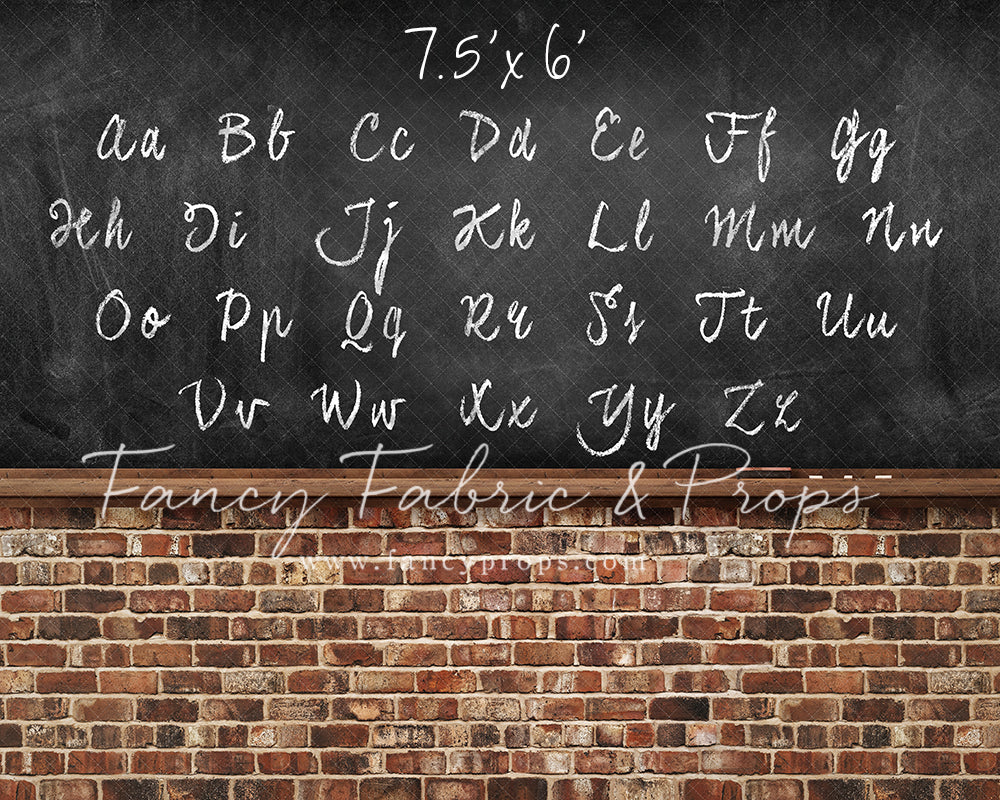 7.5'x 6'
Aa Bb Cc Dd Ee Ff Gg
Hh Ii Jj Kk Ll Mm Nn
Oo Pp Qq Rr Ss Tt Uu
Vv Ww Xx Yy Zz
Fancy Fabric & Props
www.fancyprops.com